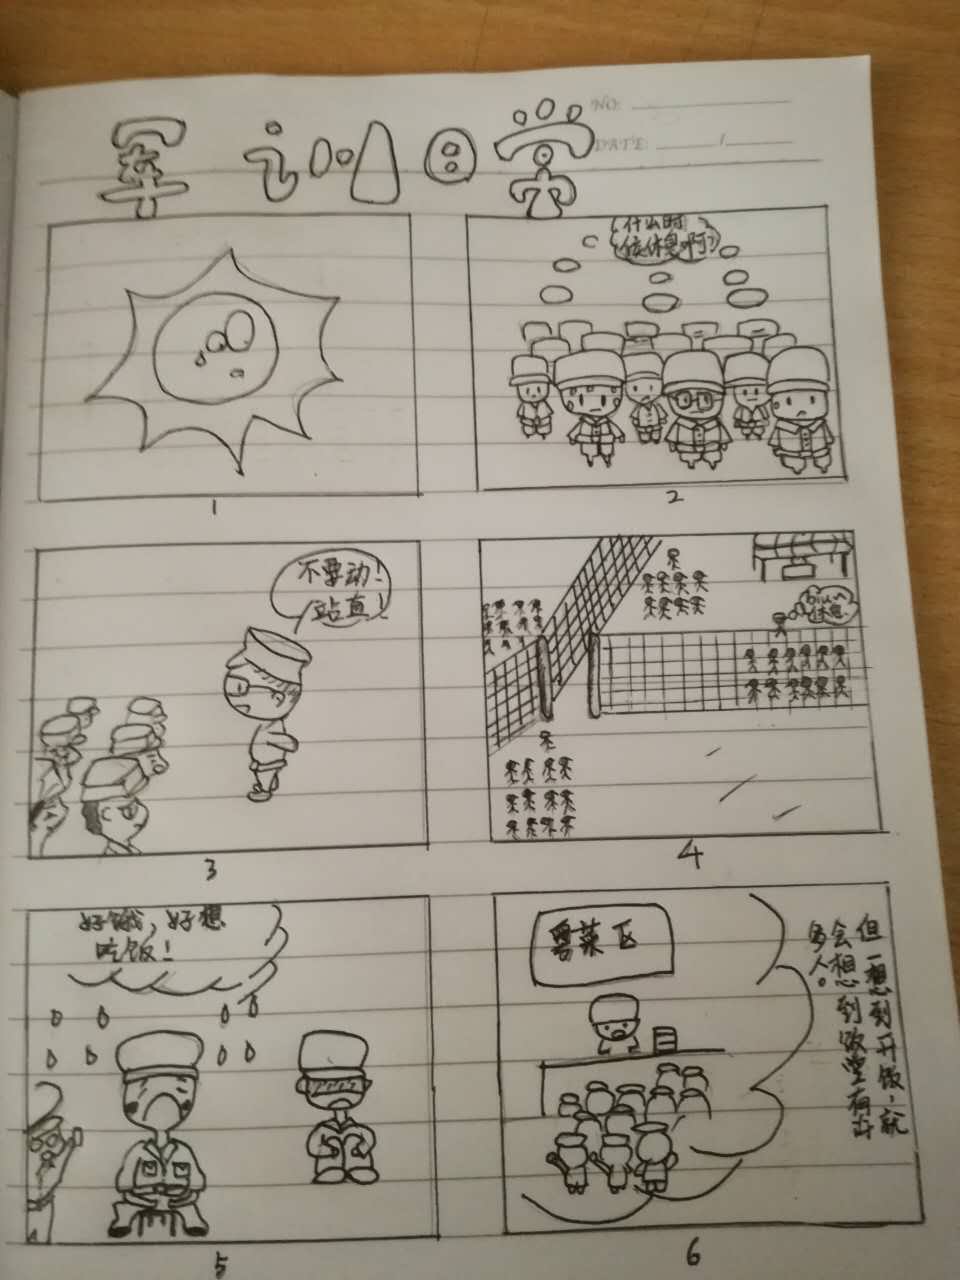 NO:
DATE:
军训日常
什么时
候休息啊?
1
2
不要动!
站直!
休息
3
4
好饿,好想
吃饭!
粤菜区
但一想到开饭,就
会想到饭堂有许
多人。
5
6